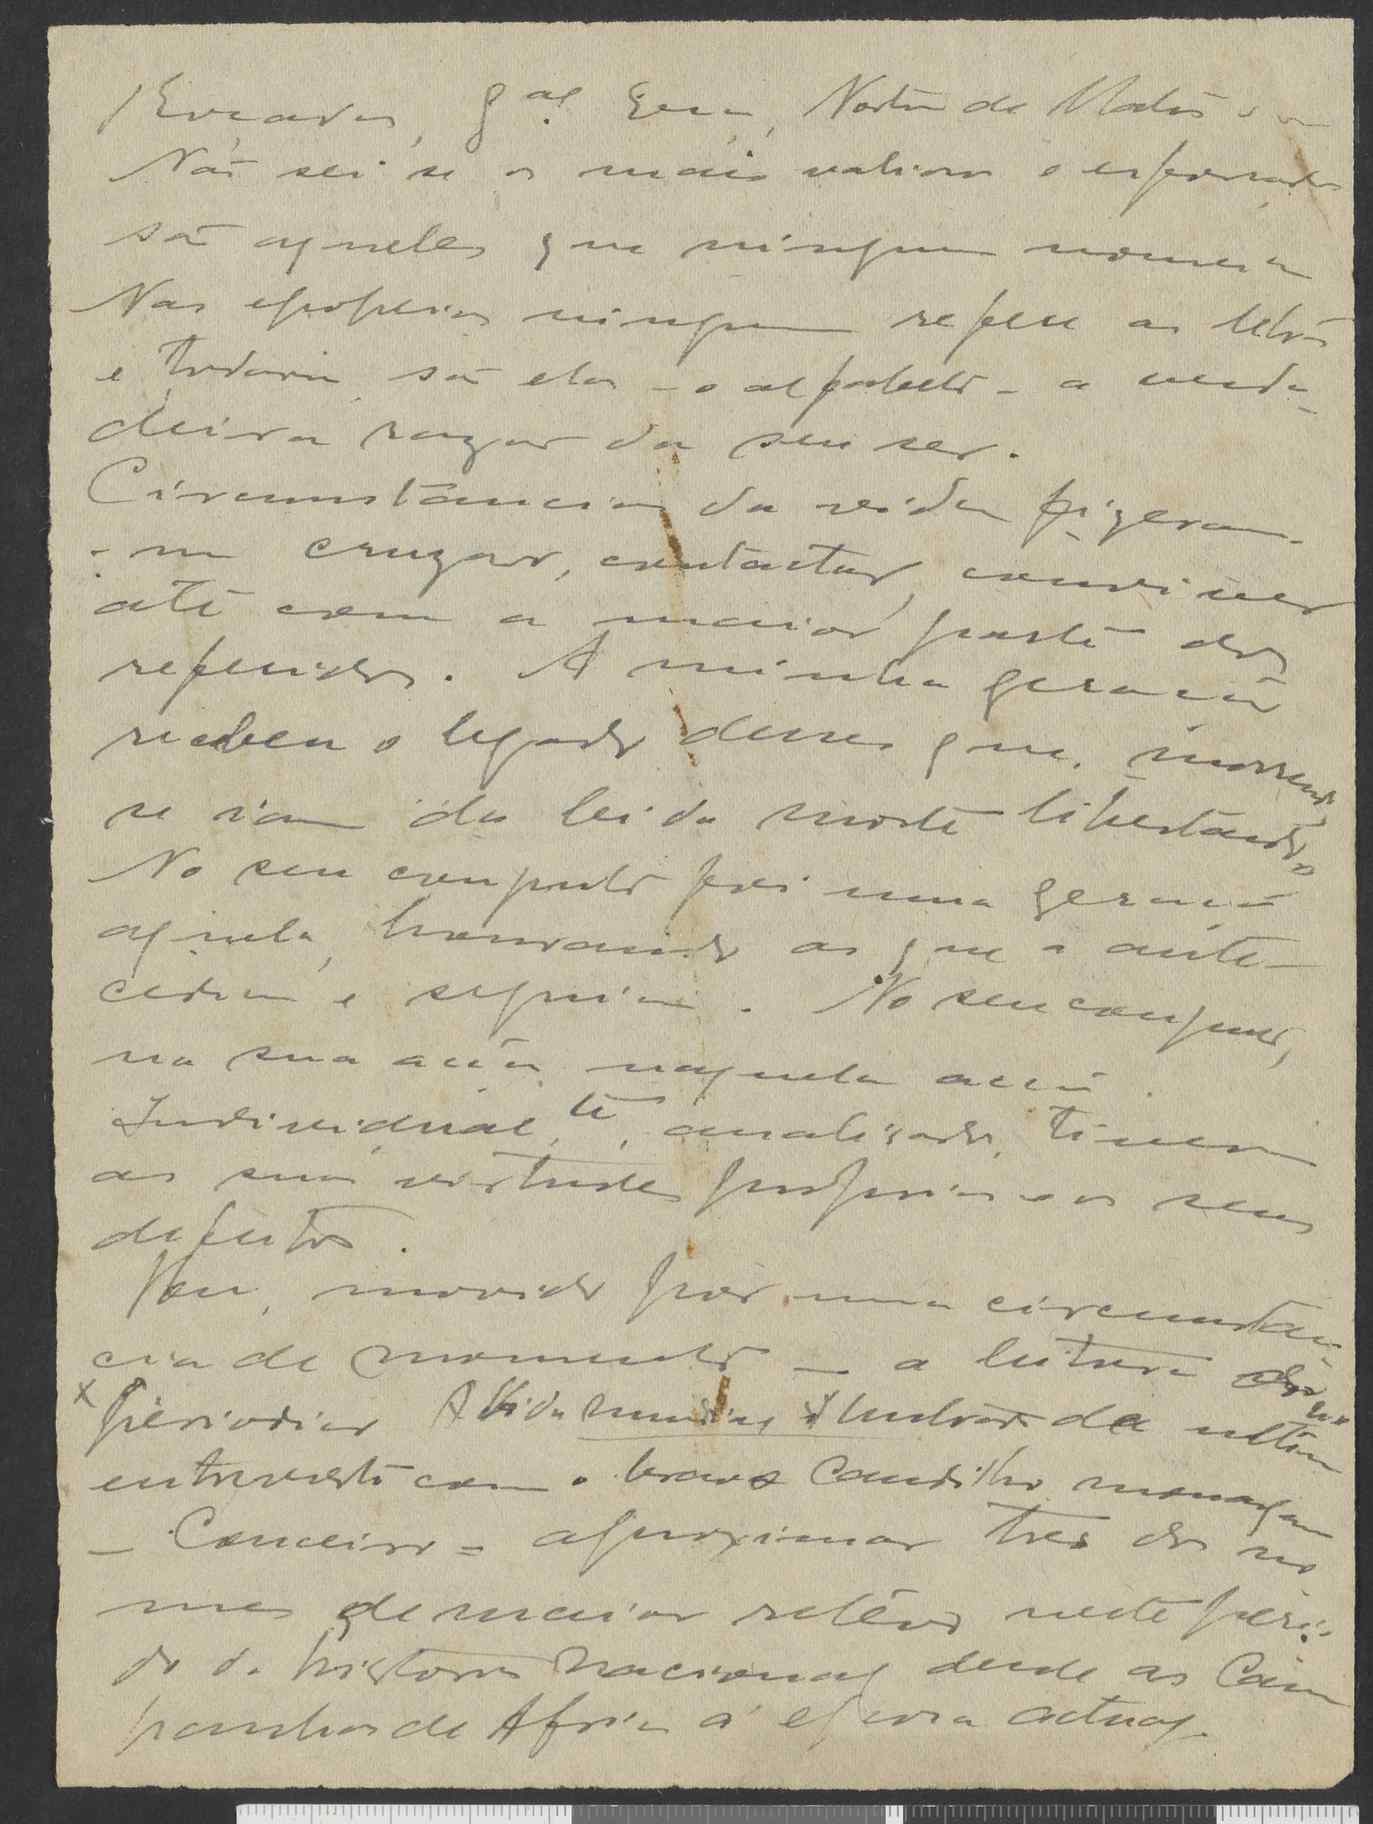 Gal Eça, Norton de Matos
Não sei se os mais valiosos e esforçados
são aqueles que ninguem nomeia
Nas epopeias ninguem refere as letras
e todavia são elas - o alfabeto - a verda-
deira razão do seu ser.
Circunstancias da vida fizeram-
-me cruzar, contactar, conviver
até com a maior parte dos
referidos. A minha geração
recebeu o legado desses que, morrendo,
se iam da lei da morte libertando
No seu conjunto foi uma geração
aquela, honrando os que a ante-
cediam e seguiam. No seu conjunto,
na sua acção, naquela acção.
Individualte, analisados, tiveram
as suas virtudes proprias e os seus
defeitos.
Vou, movido por uma circunstan-
cia de momento - a leitura
periodico A Vida mundial Ilustrada da ultima
entrevista com o bravo Caudilho monarquico
- Couceiro - aproximar tres dos no
mes de maior relêvo neste perio-
do da historia Nacional desde as Cam
panhas de Africa á epoca actual.